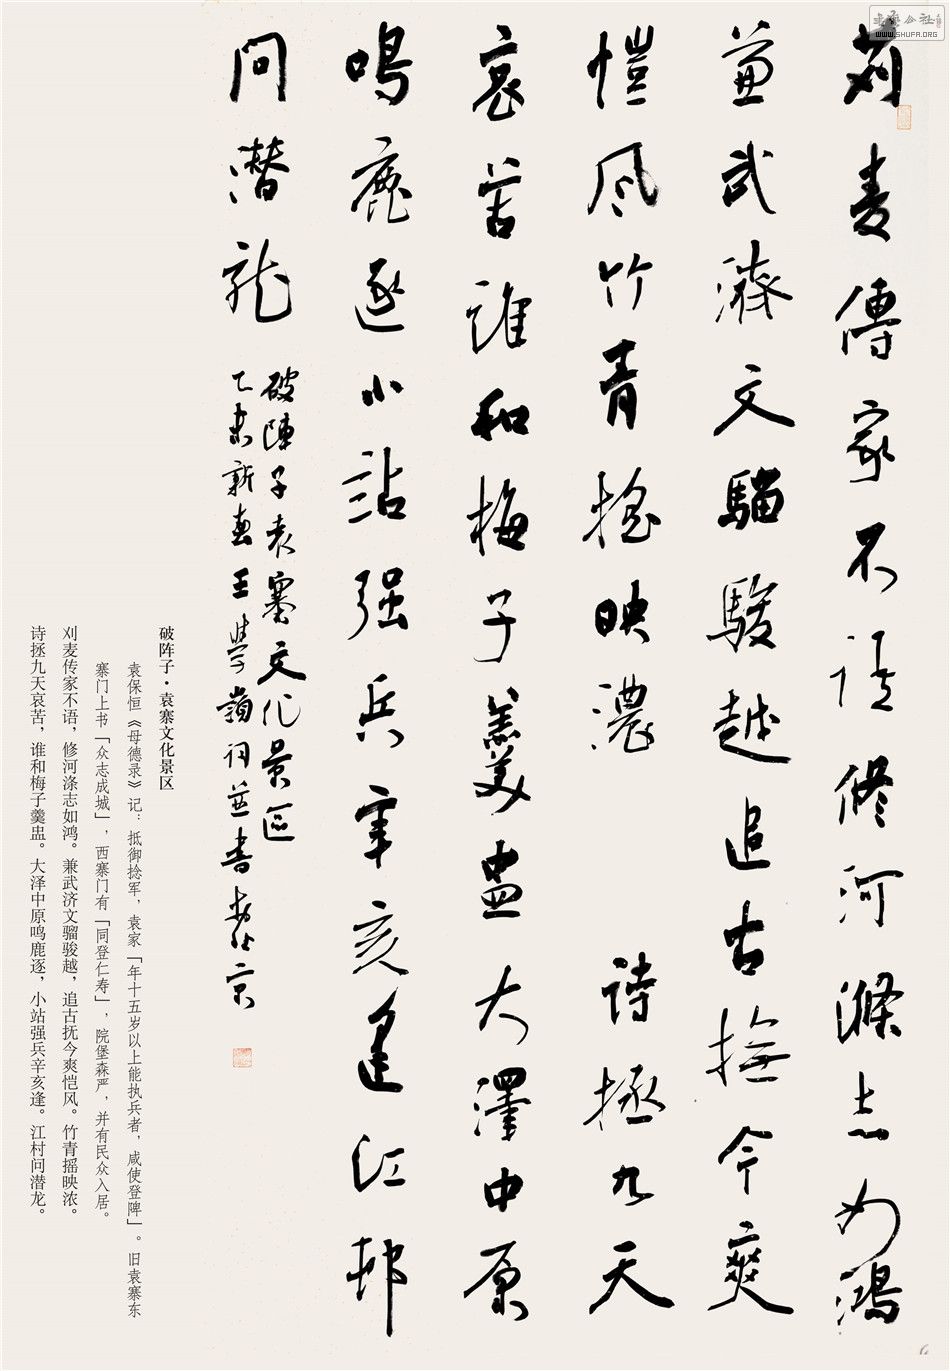 刈麦傳家不语修河滌志如鸿
兼武濟文騮駿越追古撫今爽
愷风竹青摇映濃 诗拯九天
哀苦谁和梅子羹美盅大澤中原
鳴鹿逐小站强兵辛亥逢江邨
问潜龙
破陣子袁寨文化景區
乙未新春王學嶺词並书於北京
破阵子·袁寨文化景区
袁保恒《母德录》记：抵御捻军，袁家「年十五岁以上能执兵者，咸使登陴」。旧袁寨东
寨门上书「众志成城」，西寨门有「同登仁寿」，院堡森严，并有民众入居。
刈麦传家不语，修河涤志如鸿。兼武济文骝骏越，追古抚今爽恺风。竹青摇映浓。
诗拯九天哀苦，谁和梅子羹盅。大泽中原鸣鹿逐，小站强兵辛亥逢。江村问潜龙。
WWW.SHUFA.ORG